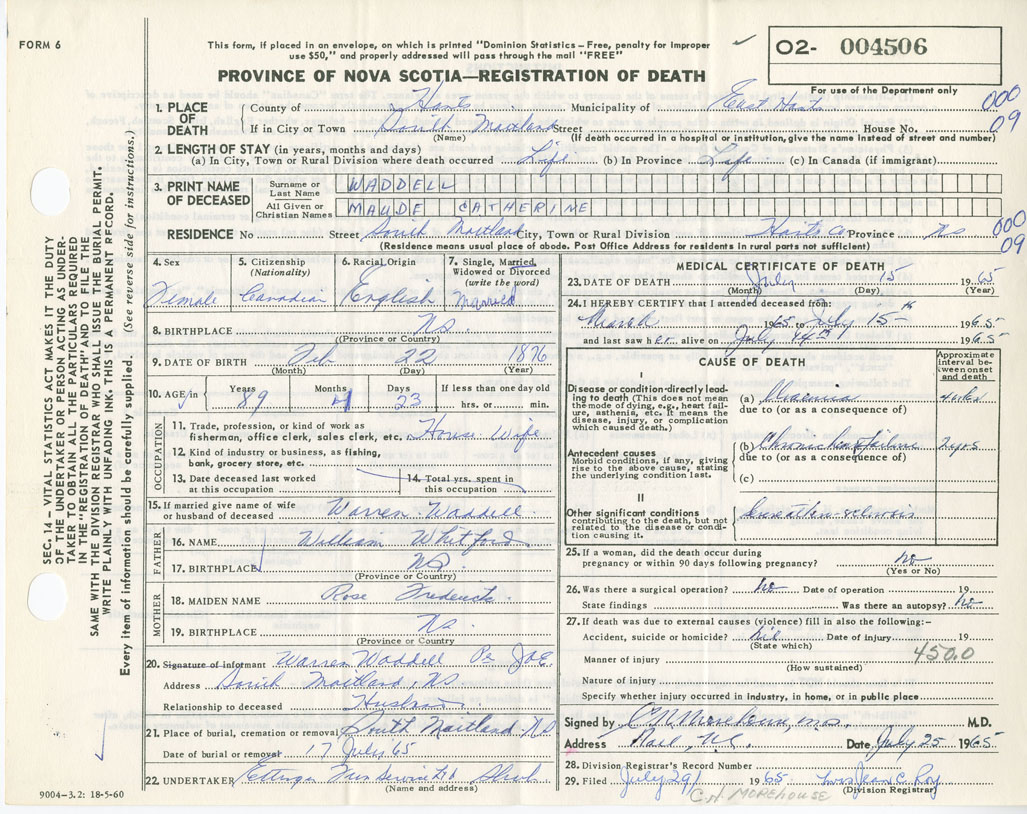 FORM 6
This form, if placed in an envelope, on which is printed "Dominion Statistics – Free, penalty for improper
use $50," and properly addressed will pass through the mail "FREE"
PROVINCE OF NOVA SCOTIA—REGISTRATION OF DEATH
02- 004506
For use of the Department only
000
09
1. PLACE OF DEATH
County of Hants Municipality of East Hants
If in City or Town South Maitland Street House No.
(Name) (If death occurred in a hospital or institution, give the name instead of street and number)
2. LENGTH OF STAY (in years, months and days)
(a) In City, Town or Rural Division where death occurred Life (b) In Province Life (c) In Canada (if immigrant)
3. PRINT NAME OF DECEASED
Surname or Last Name WADDELL
All Given or Christian Names MAUDE CATHERINE
RESIDENCE No Street South Maitland City, Town or Rural Division Hants Co Province NS
(Residence means usual place of abode. Post Office Address for residents in rural parts not sufficient)
000
09
4. Sex
Female
5. Citizenship
(Nationality)
Canadian
6. Racial Origin
English
7. Single, Married, Widowed or Divorced
(write the word)
Married
8. BIRTHPLACE NS
(Province or Country)
9. DATE OF BIRTH Feb 22 1876
(Month) (Day) (Year)
10. AGE in Years 89 Months 4 Days 23 If less than one day old
hrs. or min.
OCCUPATION
11. Trade, profession, or kind of work as
fisherman, office clerk, sales clerk, etc. House Wife
12. Kind of industry or business, as fishing,
bank, grocery store, etc.
13. Date deceased last worked
at this occupation
14. Total yrs. spent in
this occupation
15. If married give name of wife
or husband of deceased Warren Waddell
FATHER
16. NAME William Whitford
17. BIRTHPLACE NS
(Province or Country)
MOTHER
18. MAIDEN NAME Rose Fredericks
19. BIRTHPLACE NS
(Province or Country)
20. Signature of informant Warren Waddell Per JGE
Address South Maitland, NS
Relationship to deceased Husband
21. Place of burial, cremation or removal South Maitland NS
Date of burial or removal 17 July 65
22. UNDERTAKER Ettinger Fun Service Ltd
(Name and address)
MEDICAL CERTIFICATE OF DEATH
23. DATE OF DEATH July 15 1965
(Month) (Day) (Year)
24. I HEREBY CERTIFY that I attended deceased from:
March 1965 to July 15th 1965
and last saw her alive on July 14th 1965
CAUSE OF DEATH
Approximate interval between onset and death
I
Disease or condition directly leading to death (This does not mean the mode of dying, e.g., heart failure, asthenia, etc. It means the disease, injury, or complication which caused death.)
(a) Uraemia
due to (or as a consequence of)
Antecedent causes
Morbid conditions, if any, giving rise to the above cause, stating the underlying condition last.
(b) Chronic
2 yrs
due to (or as a consequence of)
(c)
II
Other significant conditions
contributing to the death, but not related to the disease or condition causing it.
25. If a woman, did the death occur during
pregnancy or within 90 days following pregnancy? No
(Yes or No)
26. Was there a surgical operation? No Date of operation 19
State findings Was there an autopsy? No
27. If death was due to external causes (violence) fill in also the following:–
Accident, suicide or homicide? Nil Date of injury 19
(State which)
Manner of injury 450.0
(How sustained)
Nature of injury
Specify whether injury occurred in industry, in home, or in public place
Signed by C N Morehouse, M.D. M.D.
Address Date July 25 1965
28. Division Registrar's Record Number
29. Filed July 29 1965 Mrs Jean C. Roy
(Division Registrar)
C.N. MOREHOUSE
SEC. 14 – VITAL STATISTICS ACT MAKES IT THE DUTY
OF THE UNDERTAKER OR PERSON ACTING AS UNDER-
TAKER TO OBTAIN ALL THE PARTICULARS REQUIRED
IN THE "REGISTRATION OF DEATH" AND TO FILE THE
SAME WITH THE DIVISION REGISTRAR WHO SHALL ISSUE THE BURIAL PERMIT.
WRITE PLAINLY WITH UNFADING INK. THIS IS A PERMANENT RECORD.
Every item of information should be carefully supplied. (See reverse side for instructions.)
9004-3.2: 18-5-60